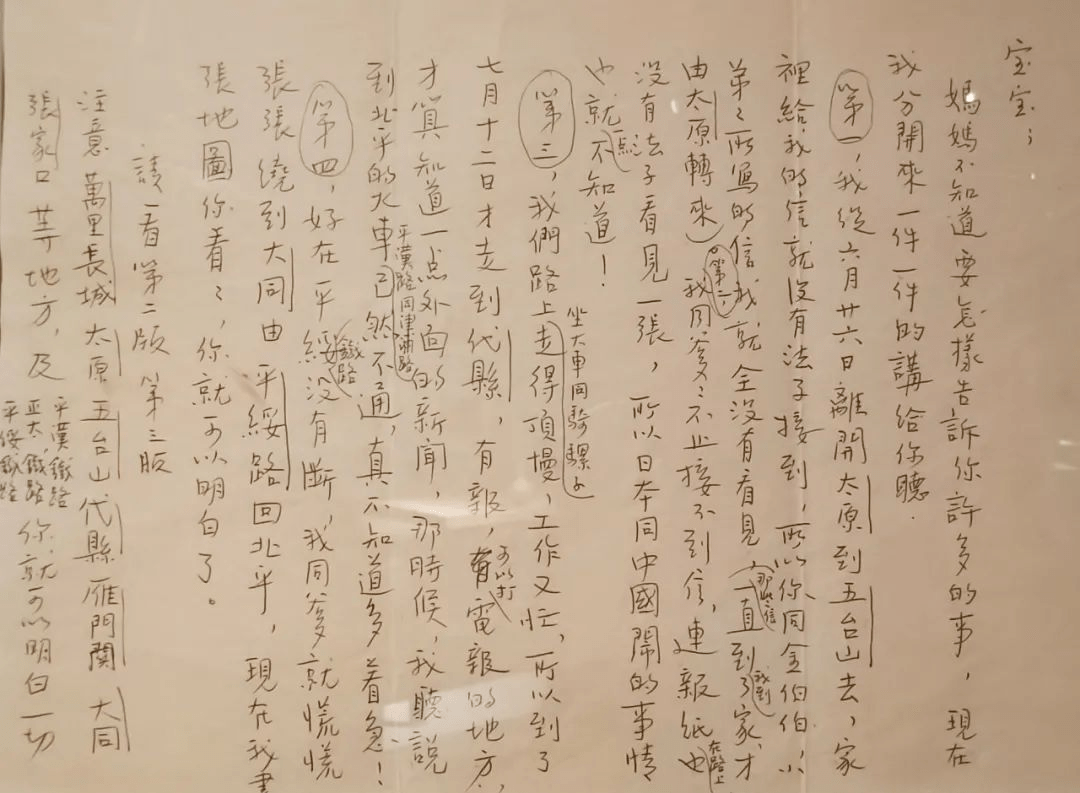 宝宝；
媽媽不知道要怎樣告訴你許多的事，現在
我分開來一件一件的講給你聽．
第一，我從六月廿六日離開太原到五台山去，家
裡給我的信就沒有法子接到，所以你同金伯伯，小
弟弟所寫的信我就全沒有看見，（那些信一直到我到了家，才
由太原轉來）。第二，我同爹爹不止接不到信，連報紙也在路上
沒有法子看見一張，所以日本同中國鬧的事情
也就一点不知道！
第三，我們路上坐大車同騎騾子走得頂慢，工作又忙，所以到了
七月十二日才走到代縣，有報，可以打電報的地方，
才算知道一点外面的新聞，那時候，我聽說
到北平的火車平漢路同津浦路已然不通，真不知道多着急！
第四，好在平綏鐵路沒有斷，我同爹就慌慌
張張繞到大同由平綏路回北平，現在我畫
張地圖你看看，你就可以明白了。
請看第二版 第三版
注意萬里長城 太原 五台山 代縣 雁門關 大同
張家口等地方，及平漢鐵路 正太鐵路 平綏鐵路 你就可以明白一切